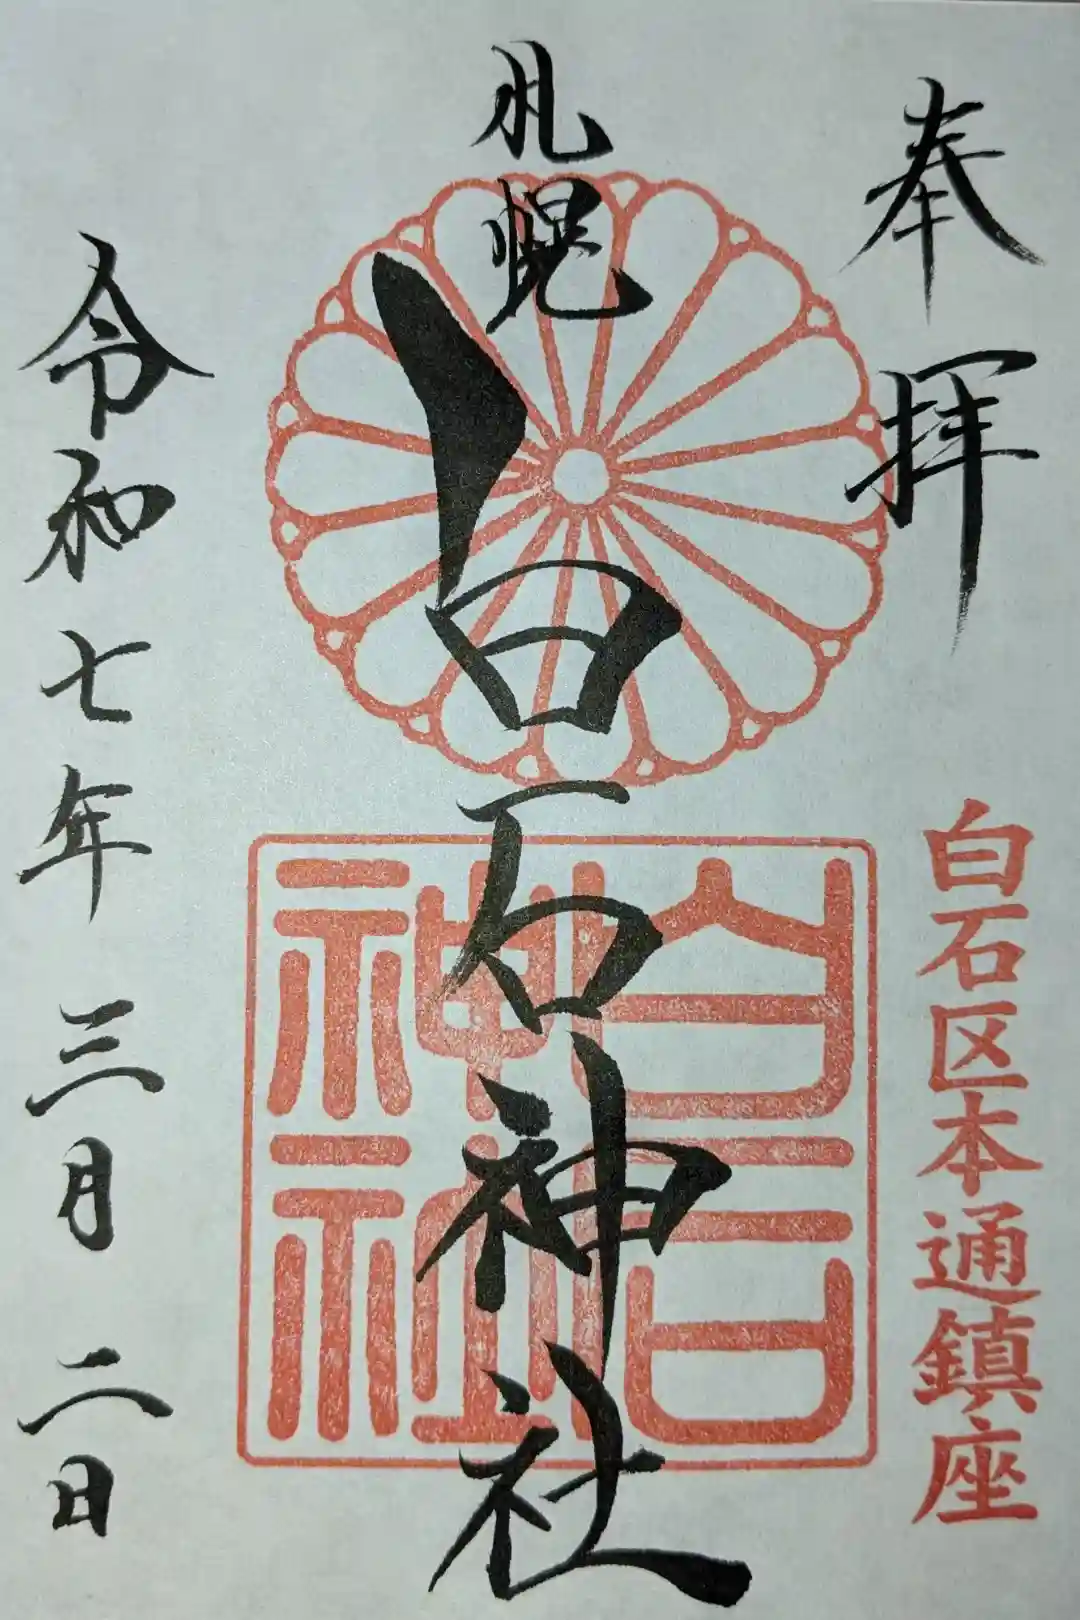 奉拝
白石区本通鎮座
札幌
白石神社
白石
神社
令和七年三月二日